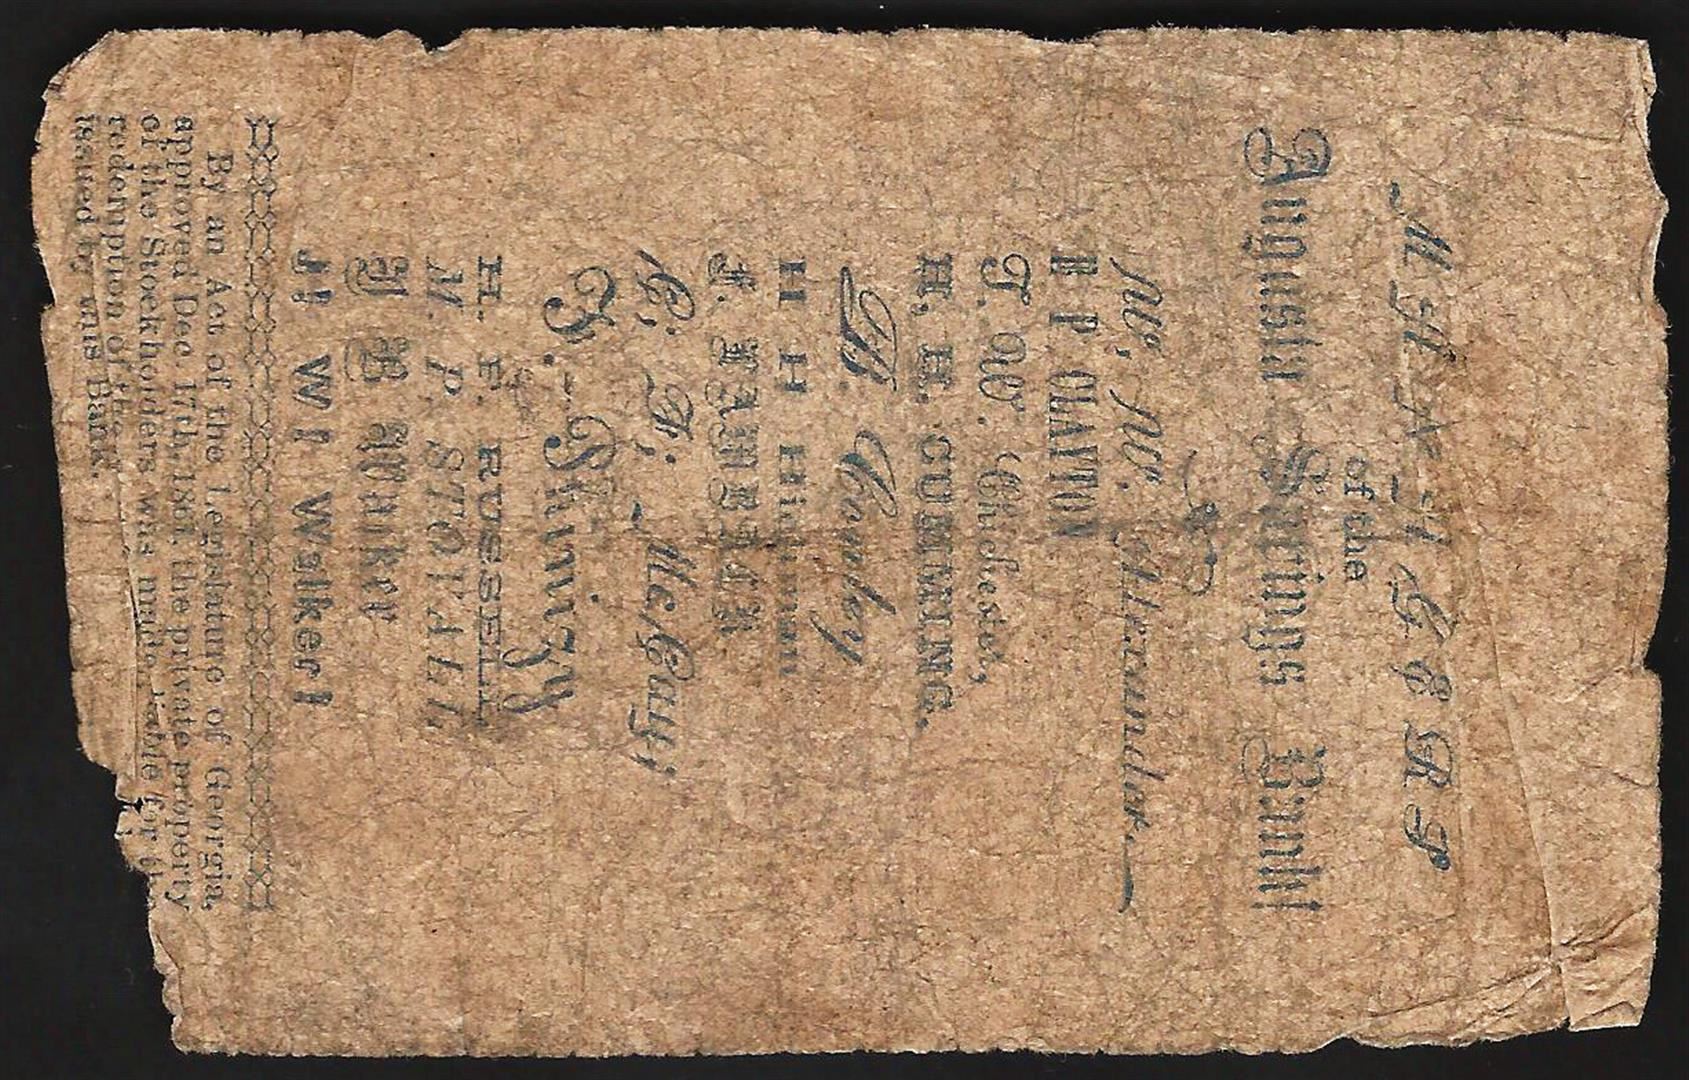 MANAGERS
of the
Augusta Savings Bank:
W, W. Alexander.
E P CLAYTON
T. W. Chichester,
H, H. CUMMING.
H. Cowley
H H Hickman
J. P. McCay;
J. Phinizy
H. F. RUSSELL
M. P. STOVALL
W B Walker
J! W! Walker!
By an Act of the Legislature of Georgia,
approved Dec 17th, 1861 the private property
of the Stockholders was made liable for the
redemption of the
issued by this Bank.